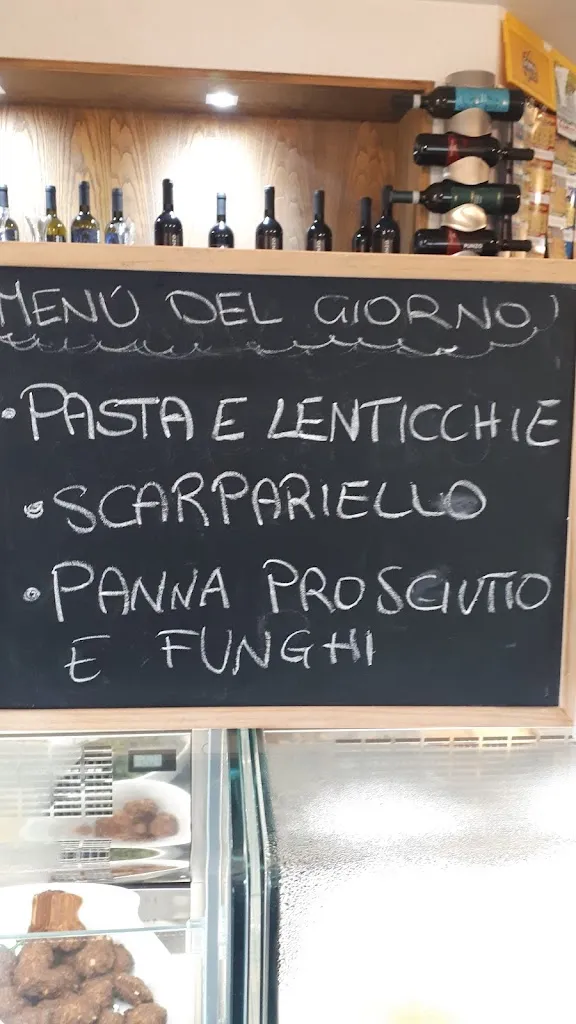 MENÚ DEL GIORNO
• PASTA E LENTICCHIE
• SCARPARIELLO
• PANNA PROSCIUTTO
E FUNGHI